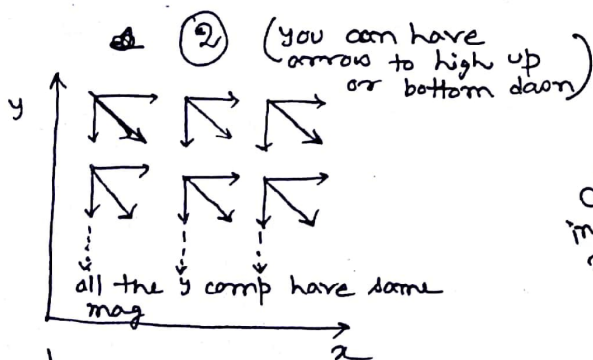 ② (you can have
arrow to high up
or bottom daon)
y
all the y comp have same
mag
x